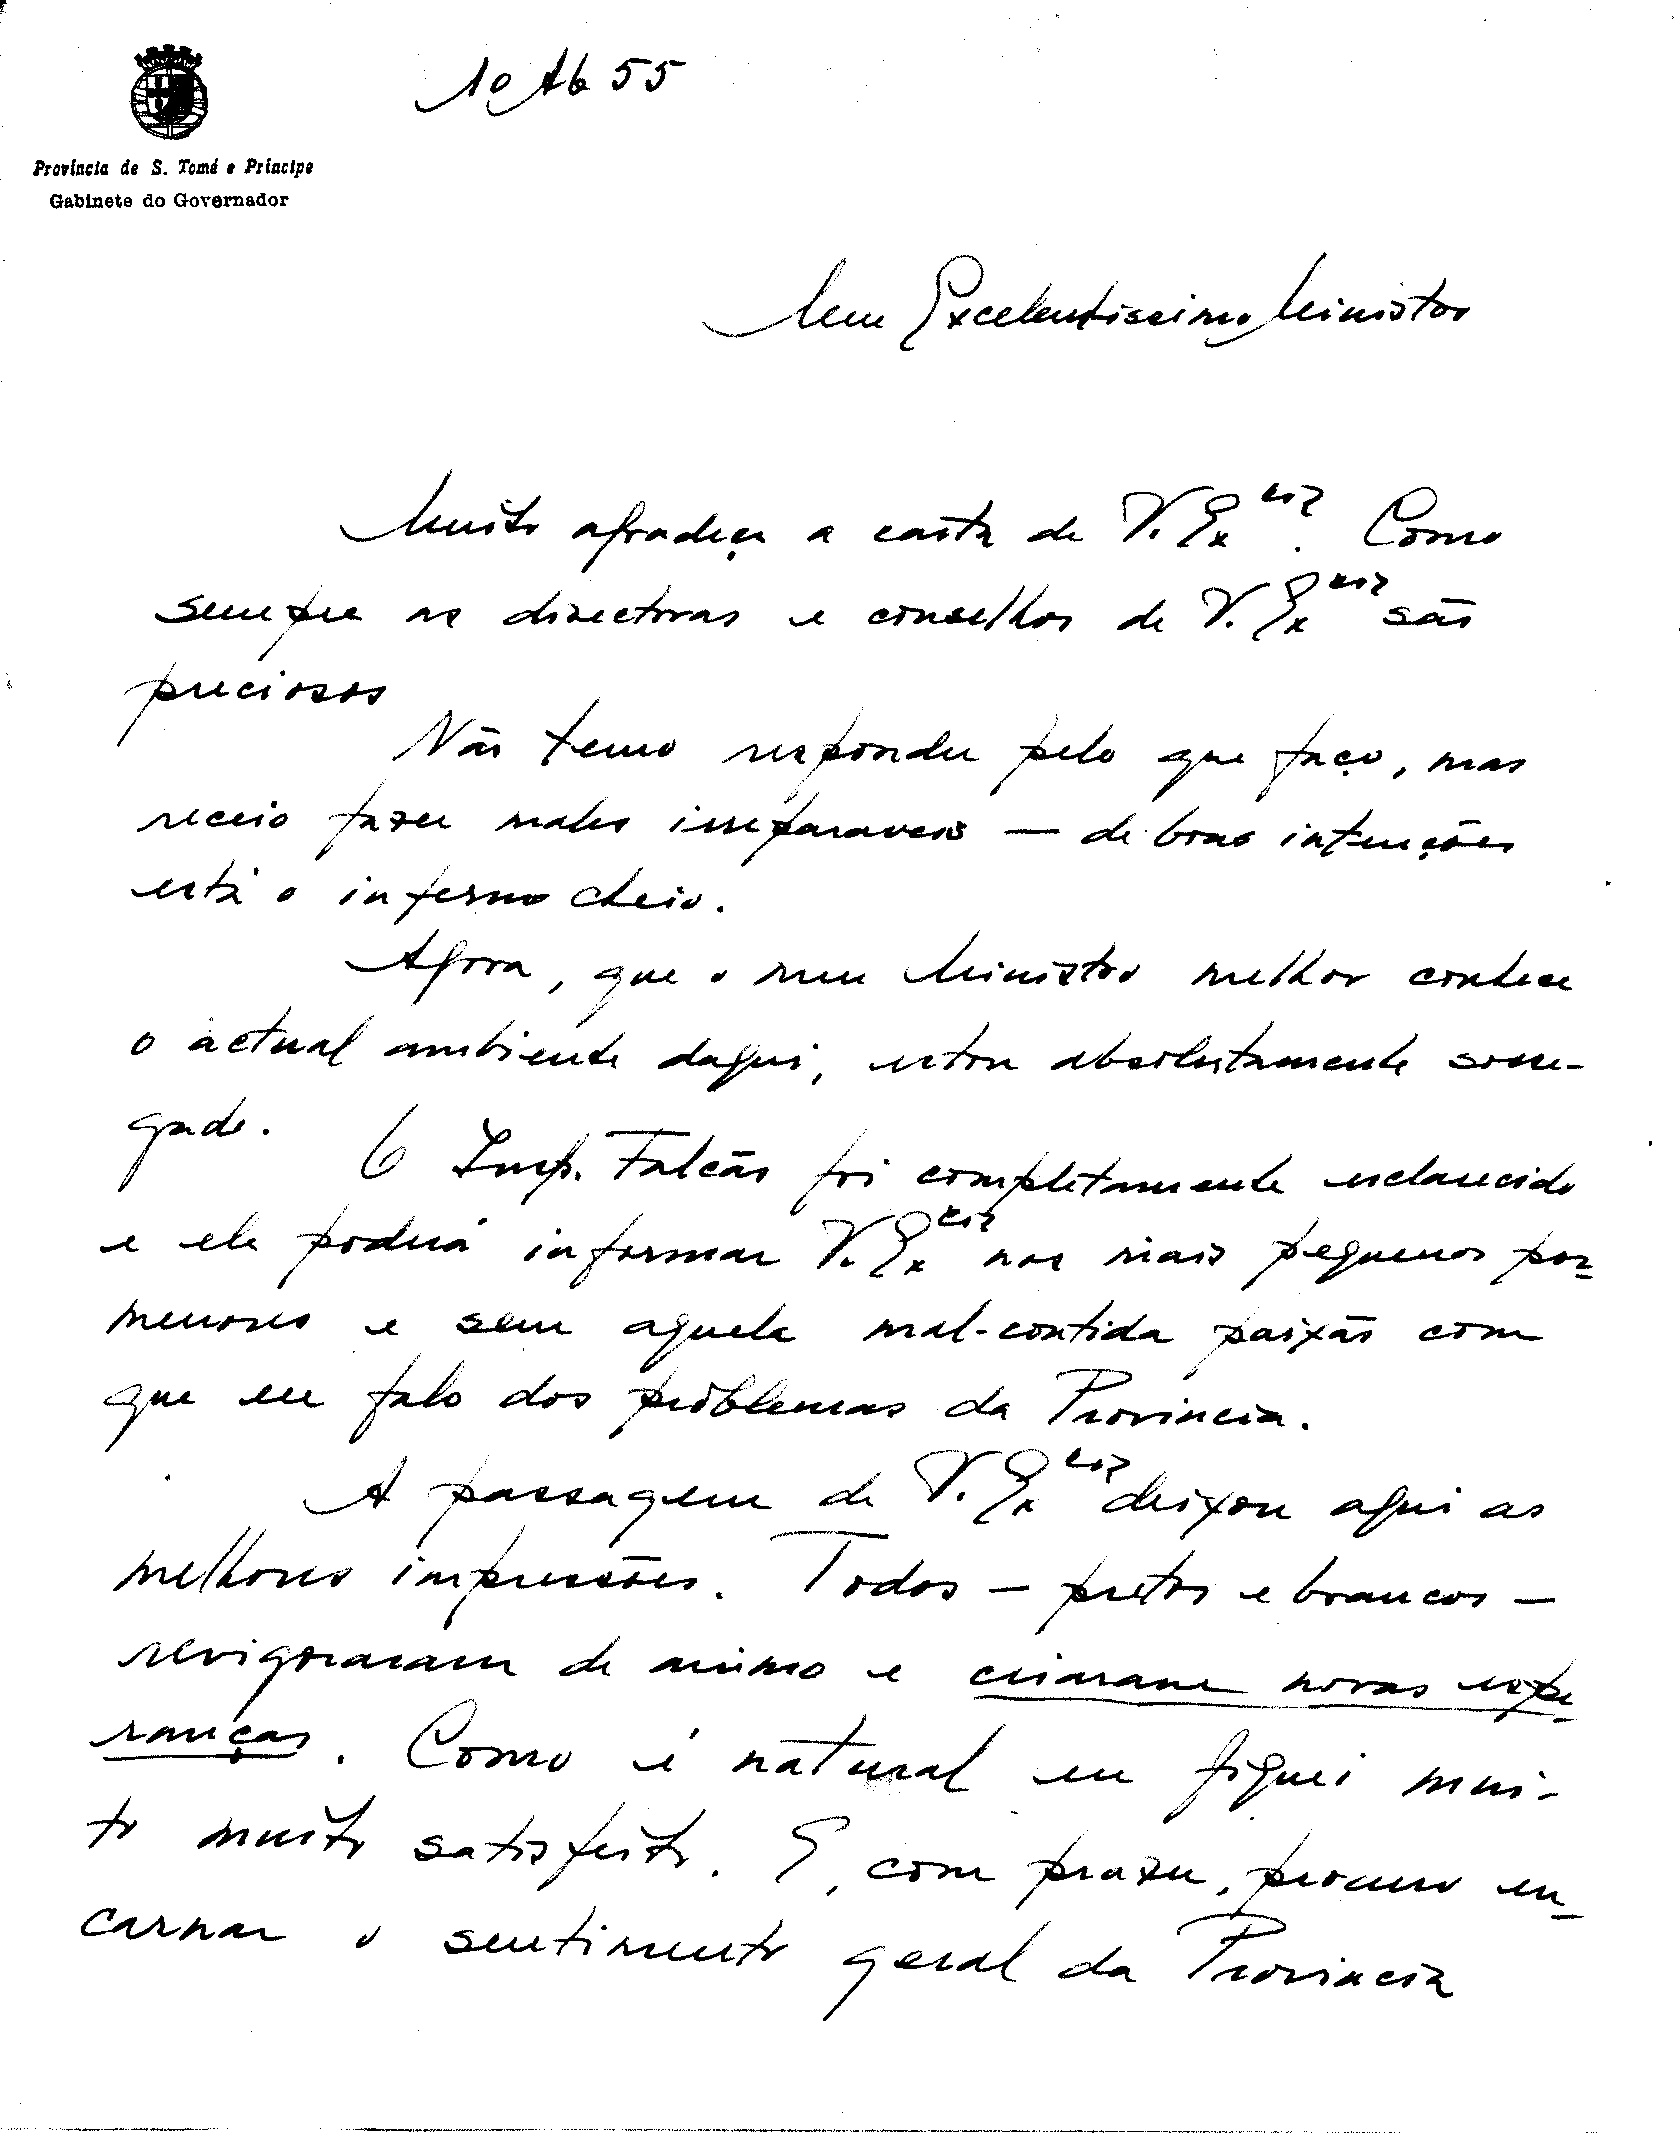 10 Ab 55
Província de S. Tomé e Príncipe
Gabinete do Governador
Meu Excelentissimo Ministro
Muito agradeço a carta de V. Ex.cia Como
sempre as directivas e conselhos de V. Excia são
preciosos
Não temo responder pelo que faço, mas
receio fazer males irreparaveis — de boas intenções
está o inferno cheio.
Agora, que o meu Ministro melhor conhece
o actual ambiente daqui, estou absolutamente sosse-
gado.
O Insp. Falcão foi completamente esclarecido
e ele poderá informar V. Excia nos mais pequenos por-
menores e sem aquela mal-contida paixão com
que eu falo dos problemas da Provincia.
A passagem de V. Excia deixou aqui as
melhores impressões. Todos — pretos e brancos —
revigoraram de animo e criaram novas espe-
ranças. Como é natural eu fiquei mui-
to muito satisfeito. E, com prazer, procuro en-
carnar o sentimento geral da Provincia